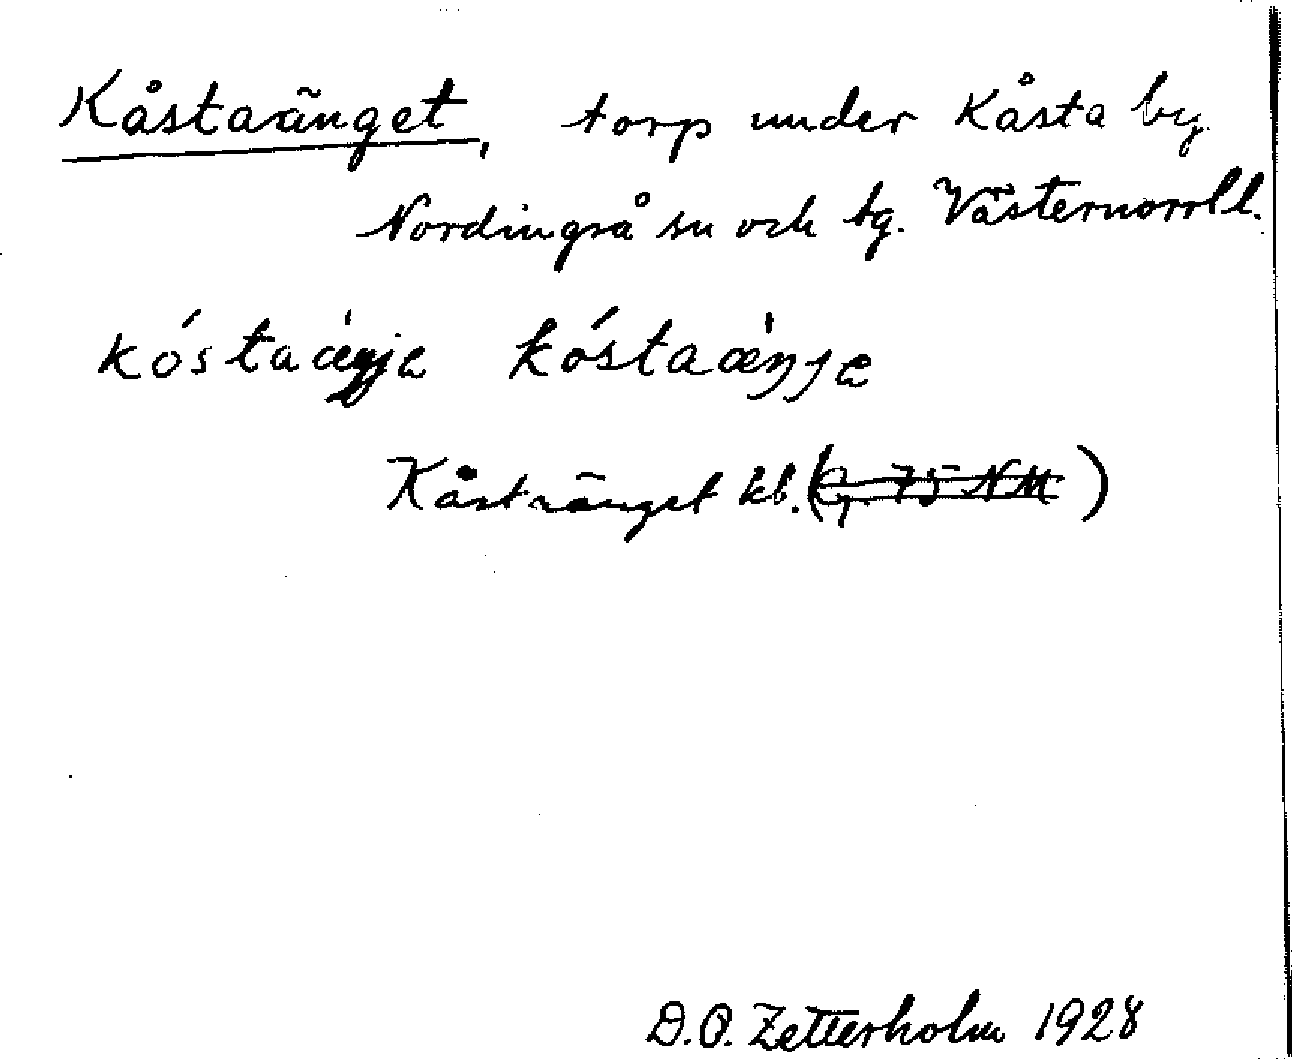 Kåstaänget, torp under Kåsta by.
Nordingrå sn och tg. Västernorrl l.
kóstaæ̀ŋje kóstaæ̀ŋje
Kåstränget kb. (Eg. 75 NM)
D.O. Zetterholm 1928